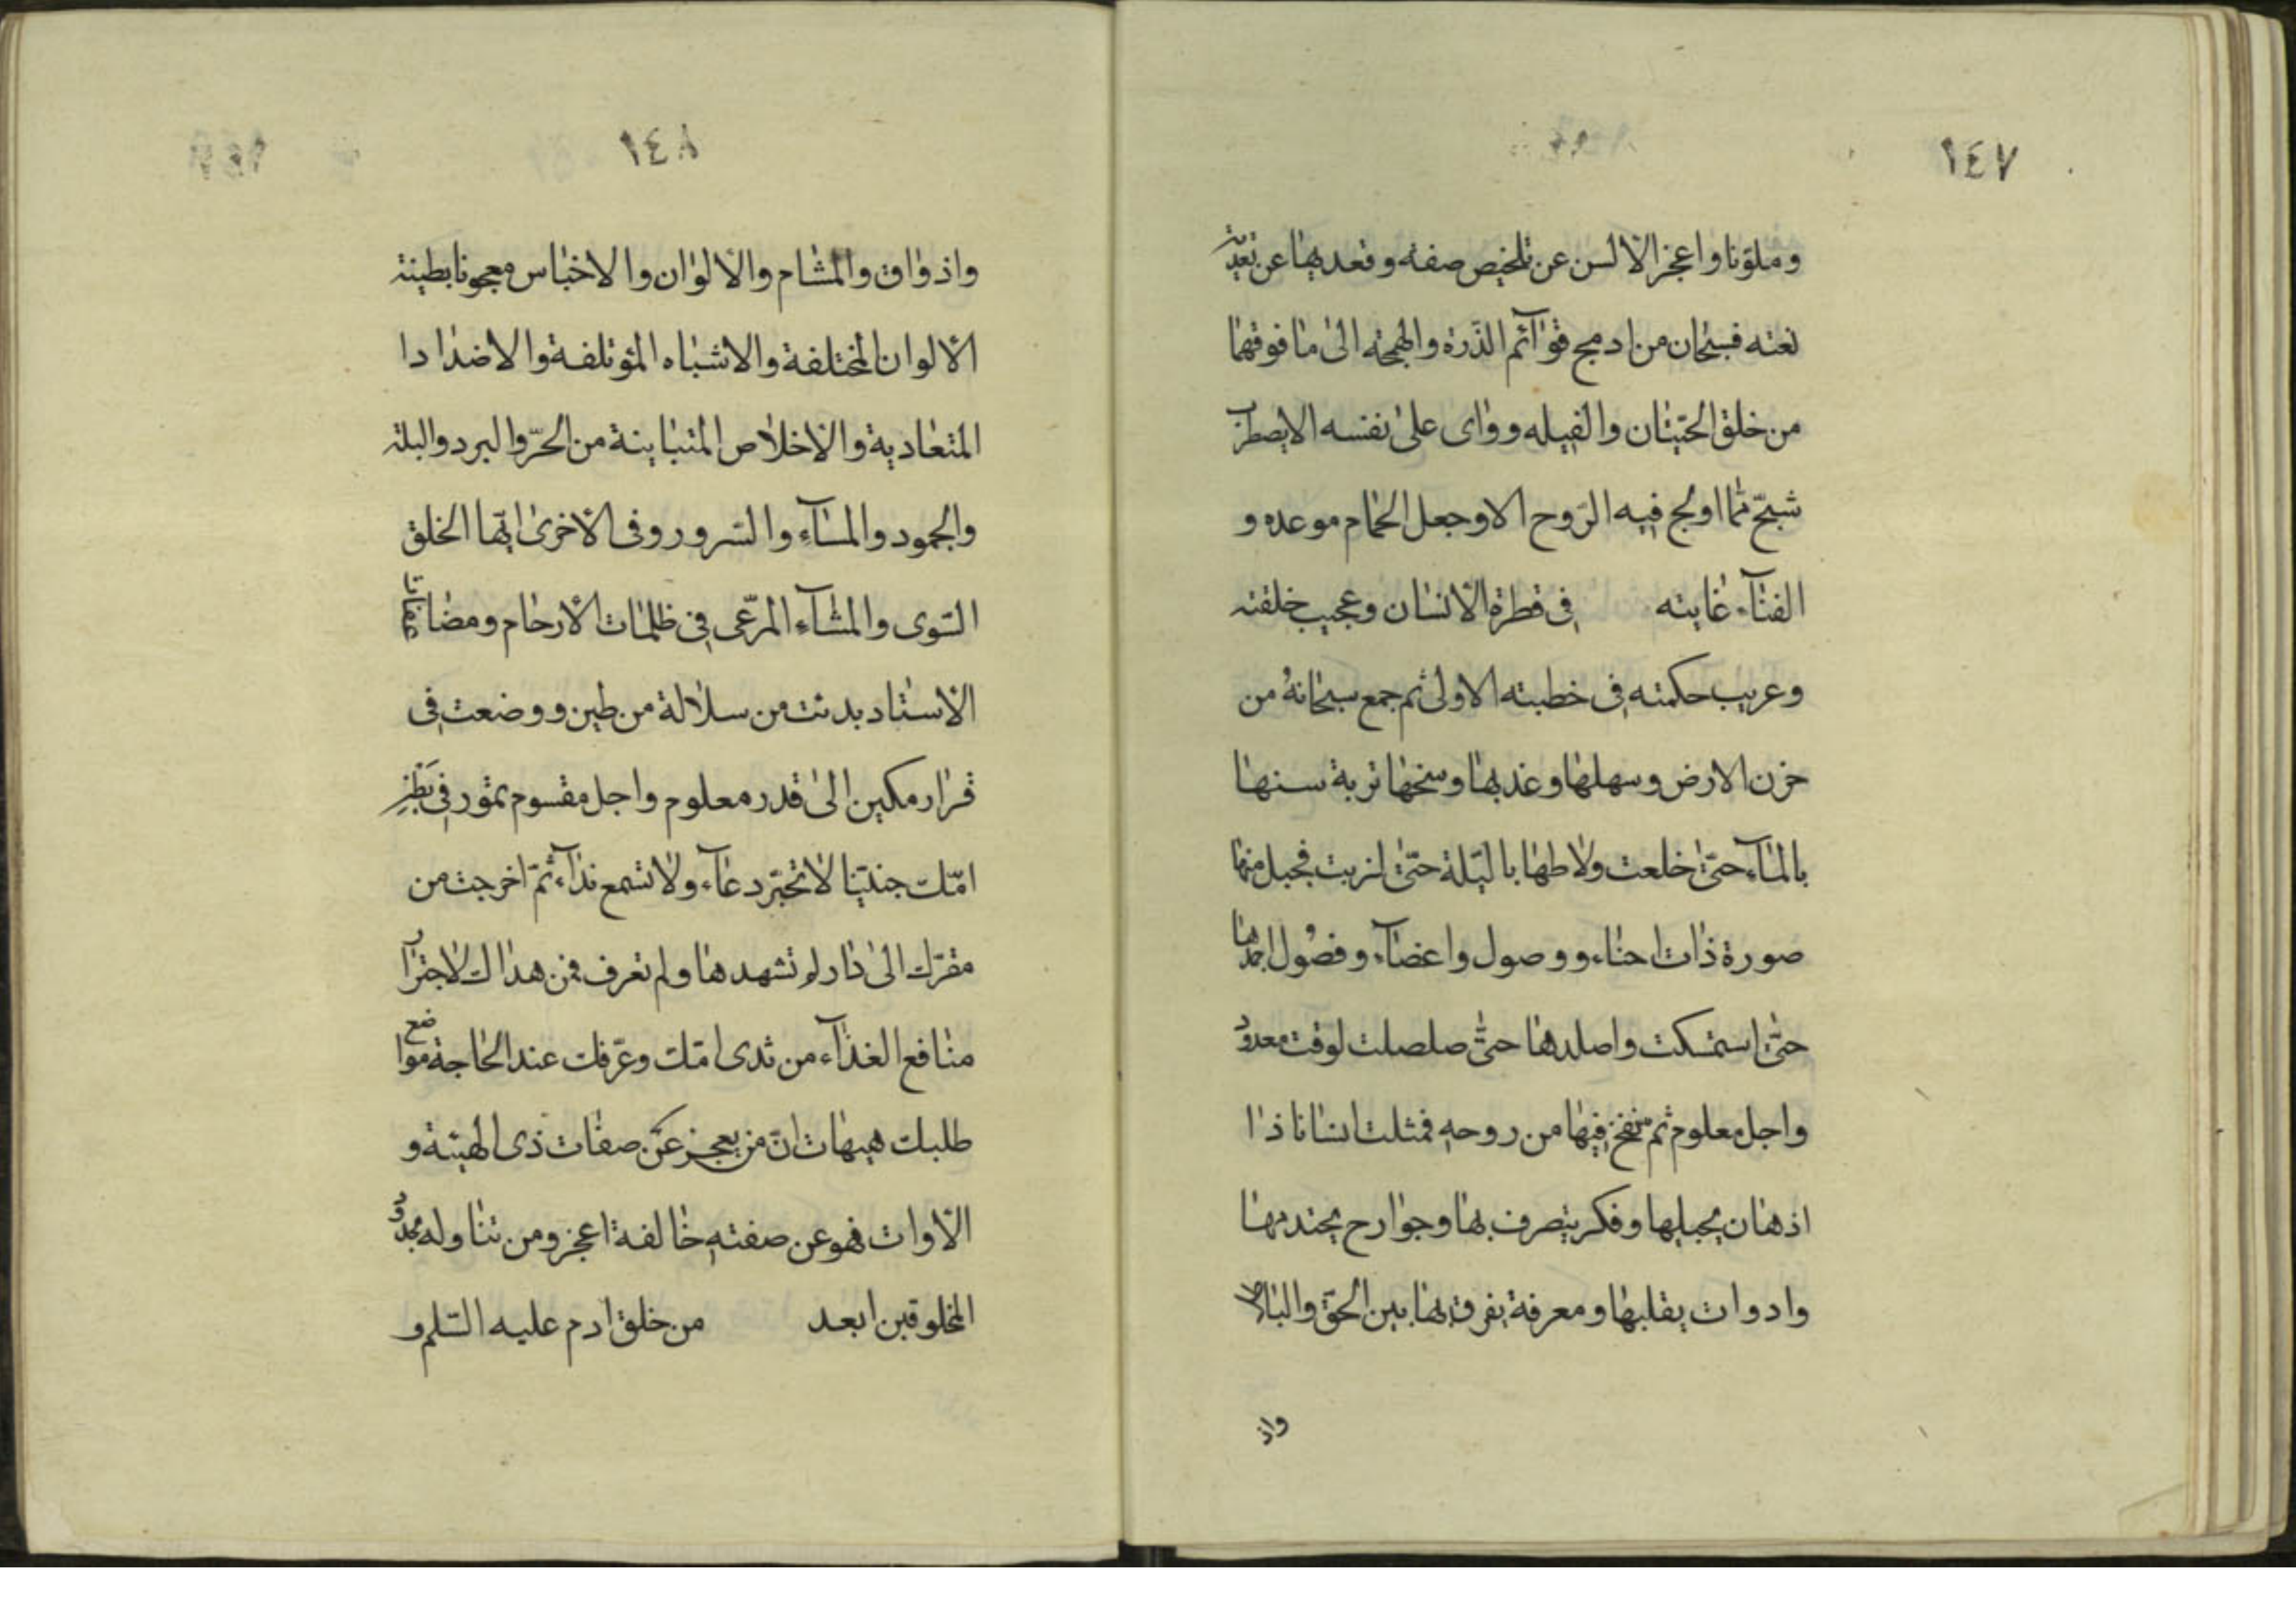 ١٤٧
وملوّنا واعجز الالسن عن تلخيص صفته وقعد بها عن تعديته
نعته فسبحان من ادمج قوآئم الذّرة والهمجة الى ما فوقها
من خلق الحيتان والفيله وواى على نفسه الا يضطرب
شبح ممّا اولج فيه الرّوح الا وجعل الحمام موعده و
الفنآء غايته في فطرة الانسان وعجيب خلقته
وعريب حكمته في خطبته الاولى ثم جمع سبحانهُ من
حزن الارض وسهلها وعذبها وسبخها تربة سنها
بالمآء حتّى خلعت ولاطها بالبّلة حتّى لزبت فجبل منها
صورة ذات احناء ووصول واعضآء وفصُول اجمدها
حتّى استمسكت واصلدها حتّى صلصلت لوقت معدود
واجل معلوم ثم نفخ فيها من روحه فمثلت انسانا ذا
اذهان يجيلها وفكر يتصرف بها وجوارح يختدمها
وادوات يقلبها ومعرفة يفرق بها بين الحقّ والباطل
واذ
١٤٨
واذواق والمشام والالوان والاخباس معجونا بطينة
الالوان المختلفة والاشباه المؤتلفة والاضدادا
المتعادية والاخلاص المتباينة من الحرّ والبرد والبلة
والجمود والمسآء والسّرور وفى الاخرى ايّها الخلق
السّوى والمشآء المرّعى في ظلمات الارحام ومضاعفات
الاستاد بدئت من سلالة من طين ووضعت فى
قرار مكين الى قدر معلوم واجل مقسوم تمور في بَطْنِ
امّك جنيّنا لا تحيّر دعآء ولا تسمع ندآء ثمّ اخرجت من
مقرّك الى دار لم تشهدها ولم تعرف فمن هداك لاجترآر
منافع الغذآء من ثدى امّك وعرّفك عند الحاجة مواضع
طلبك هيهات انّ من يعجز عَن صفات ذى الهيئة و
الاوات فهو عن صفته خالفة اعجز ومن تناوله بحدود
المخلوقين ابعد من خلق ادم عليه السّلم و